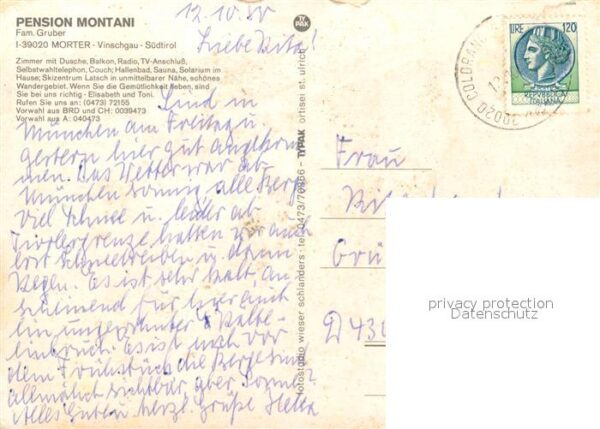 PENSION MONTANI
Fam. Gruber
I-39020 MORTER - Vinschgau - Südtirol
Zimmer mit Dusche, Balkon, Radio, TV-Anschluß,
Selbstwahltelephon, Couch; Hallenbad, Sauna, Solarium im
Hause; Skizentrum Latsch in unmittelbarer Nähe, schönes
Wandergebiet. Wenn Sie die Gemütlichkeit lieben, sind
Sie bei uns richtig - Elisabeth und Toni.
Rufen Sie uns an: (0473) 72155
Vorwahl aus BRD und CH: 0039473
Vorwahl aus A: 040473
12.10.80
Liebe Rita!
Sind in
München am Freitag u.
gestern hier gut angekom
men. Das Wetter war ab
München sonnig, alle Berge
viel Schnee u. leider ab
Tirolergrenze hatten wir auch
erst Schneetreiben u. dann
Regen. Es ist sehr kalt an
scheinend für hier auch
ein ungewohnter Kälte
einbruch. Es ist noch vor
dem Frühstück die Berge sind
allmählich sichtbar aber Sonne?
Alles Guten herzl. Grüße Hella
TYPAK
fotostudio wieser schlanders : tel. 0473/70866 - TYPAK ortisei st. ulrich
LIRE 120
REPUBBLICA
ITALIANA
39020 COLDRANO
Frau
Grü
D 43
privacy protection
Datenschutz